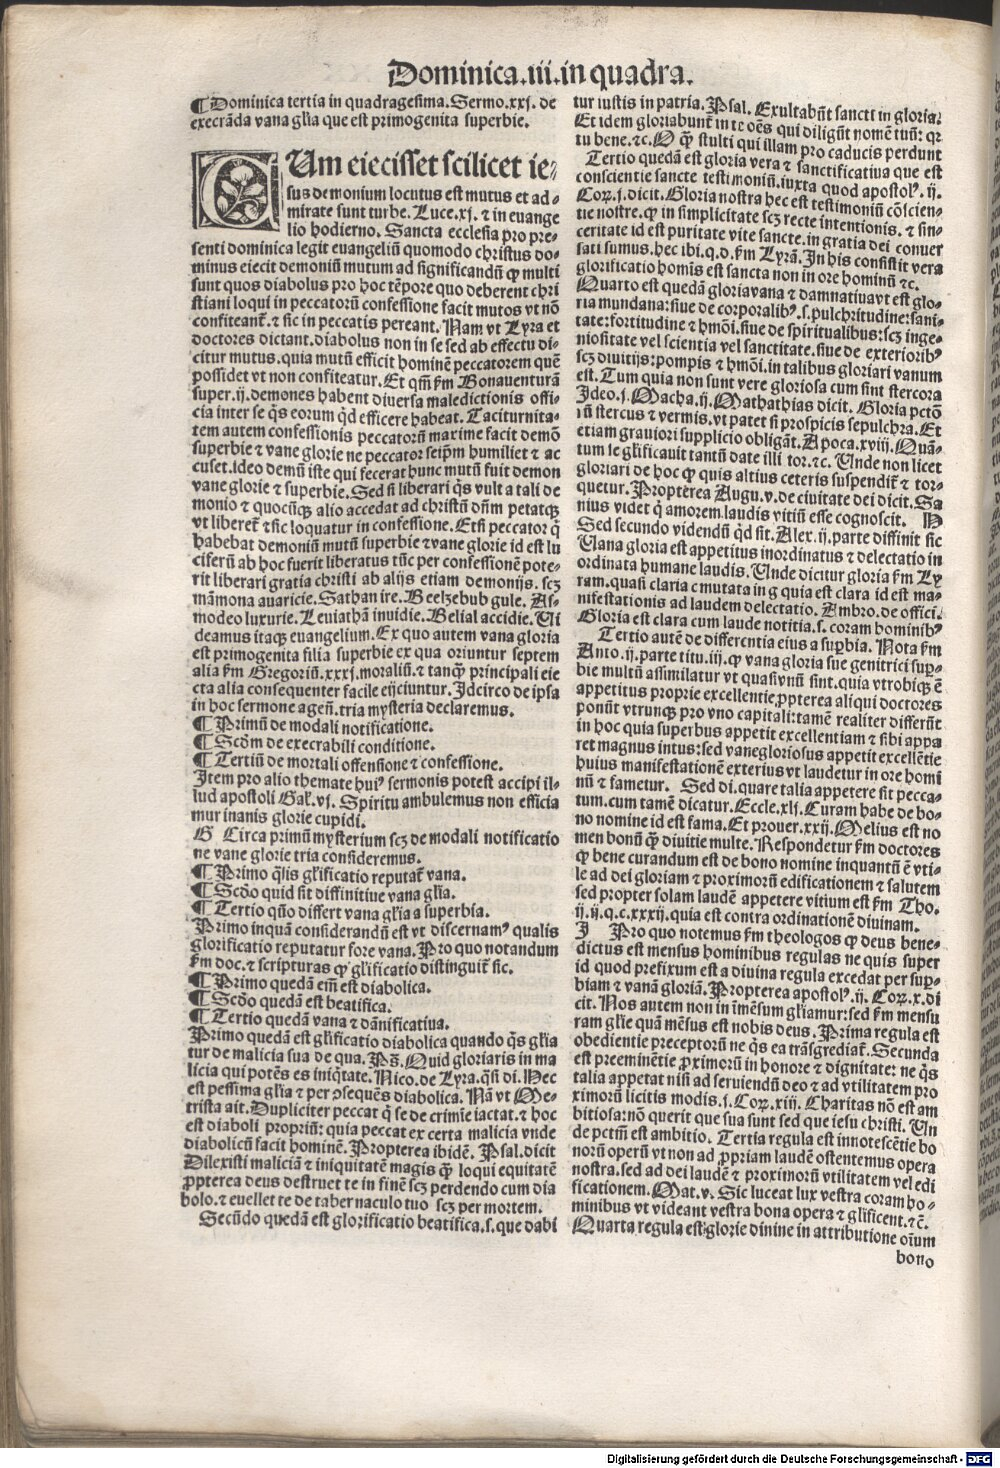 Dominica.iii.in quadra.
¶ Dominica tertia in quadragesima. Sermo.xxj. de
execrãda vana gl̃ia que est primogenita superbie.
CUm eiecisset scilicet ie⸗
sus demonium locutus est mutus et ad⸗
mirate sunt turbe. Luce.xj. ⁊ in euange
lio hodierno. Sancta ecclesia pro pre⸗
senti dominica legit euangeliũ quomodo christus do⸗
minus eiecit demoniũ mutum ad significandũ ꝙ multi
sunt quos diabolus pro hoc tẽpore quo deberent chri
stiani loqui in peccatorũ confessione facit mutos vt nõ
confiteant᷑. ⁊ sic in peccatis pereant. Nam vt Lyra et
doctores dictant. diabolus non in se sed ab effectu di⸗
citur mutus. quia mutũ efficit hominẽ peccatorem quẽ
possidet vt non confiteatur. Et qm̃ ẜm Bonauenturã
super.ij. demones habent diuersa maledictionis offi⸗
cia inter se q̃s eorum qd̃ efficere habeat. Taciturnita⸗
tem autem confessionis peccatorũ maxime facit demõ
superbie ⁊ vane glorie ne peccator seip̃m humiliet ⁊ ac
cuset. ideo demũ iste qui fecerat hunc mutũ fuit demon
vane glorie ⁊ superbie. Sed si liberari q̃s vult a tali de
monio ⁊ quocũꝗ alio accedat ad christũ dñm petatꝗ
vt liberet᷑ ⁊ sic loquatur in confessione. Etsi peccator q̃
habebat demoniũ mutũ superbie ⁊ vane glorie id est lu
ciferũ ab hoc fuerit liberatus tũc per confessionẽ pote⸗
rit liberari gratia christi ab alijs etiam demonijs. scꝫ
mãmona auaricie. Sathan ire. Beelzebub gule. As⸗
modeo luxurie. Leuiathã inuidie. Belial accidie. Ui
deamus itaꝗ euangelium. Ex quo autem vana gloria
est primogenita filia superbie ex qua oriuntur septem
alia ẜm Gregoriũ.xxxj. moraliũ. ⁊ tanꝙ principali eie
cta alia consequenter facile eijciuntur. Idcirco de ipsa
in hoc sermone agen̄. tria mysteria declaremus.
¶ Primũ de modali notificatione.
¶ Scõm de execrabili conditione.
¶ Tertiũ de mortali offensione ⁊ confessione.
Item pro alio themate huiꝰ sermonis potest accipi il⸗
lud apostoli Gal̃.vj. Spiritu ambulemus non efficia
mur inanis glorie cupidi.
G Circa primũ mysterium scꝫ de modali notificatio
ne vane glorie tria consideremus.
¶ Primo q̃lis gl̃ificatio reputat᷑ vana.
¶ Scõo quid sit diffinitiue vana gl̃ia.
¶ Tertio qũo differt vana gl̃ia a superbia.
Primo inquã considerandũ est vt discernamꝰ qualis
glorificatio reputatur fore vana. Pro quo notandum
ẜm doc. ⁊ scripturas ꝙ gl̃ificatio distinguit᷑ sic.
¶ Primo quedam em̃ est diabolica.
¶ Scõo quedã est beatifica.
¶ Tertio quedã vana ⁊ dãnificatiua.
Primo quedã est gl̃ificatio diabolica quando q̃s gl̃ia
tur de malicia sua de qua. Ps̃. Quid gloriaris in ma
licia qui potẽs es iniq̃tate. Nico. de Lyra. q̃si di. Hec
est pessima gl̃ia ⁊ per ꝯsequẽs diabolica. Nã vt Me⸗
trista ait. Dupliciter peccat q̃ se de crimĩe iactat. ⁊ hoc
est diaboli propriũ: quia peccat ex certa malicia vnde
diabolicũ facit hominẽ. Propterea ibidẽ. Psal. dicit
Dilexisti maliciã ⁊ iniquitatẽ magis ꝙ̃ loqui equitatẽ
ꝓpterea deus destruet te in finẽ scꝫ perdendo cum dia
bolo. ⁊ euellet te de tabernaculo tuo scꝫ per mortem.
Secũdo quedã est glorificatio beatifica. s. que dabi
tur iustis in patria. Psal. Exultabũt sancti in gloria.
Et idem gloriabunt᷑ in te oẽs qui diligũt nomẽ tuũ: qr
tu bene. ⁊c. O ꝙ̃ stulti qui illam pro caducis perdunt
Tertio quedã est gloria vera ⁊ sanctificatiua que est
conscientie sancte testimoniũ. iuxta quod apostolꝰ. ij.
Coꝝ. j. dicit. Gloria nostra hec est testimoniũ cõscien⸗
tie nostre. ꝙ in simplicitate scꝫ recte intentionis. ⁊ sin⸗
ceritate id est puritate vite sancte. in gratia dei conuer
sati sumus. hec ibi. q. d. ẜm Lyrã. In his consistit vera
glorificatio homĩs est sancta non in ore hominũ ⁊c.
Quarto est quedã gloria vana ⁊ damnatiua vt est glo⸗
ria mundana: siue de corporalibꝰ. s. pulchritudine: sani⸗
tate: fortitudine ⁊ hmõi. siue de spiritualibus: scꝫ inge⸗
niositate vel scientia vel sanctitate. siue de exterioribꝰ
scꝫ diuitijs: pompis ⁊ hmõi. in talibus gloriari vanum
est. Tum quia non sunt vere gloriosa cum sint stercora
Ideo. j. Macha. ij. Mathathias dicit. Gloria pctõ
rũ stercus ⁊ vermis. vt patet si prospicis sepulchra. Et
etiam grauiori supplicio obligãt. Apoca. xviij. Quã⸗
tum se gl̃ificauit tantũ date illi tor. ⁊c. Unde non licet
gloriari de hoc ꝙ quis altius ceteris suspendit᷑ ⁊ tor⸗
quetur. Propterea Augu. v. de ciuitate dei dicit. Sa
nius videt q̃ amorem laudis vitiũ esse cognoscit. H
Sed secundo videndũ qd̃ sit. Alex. ij. parte diffinit sic
Uana gloria est appetitus inordinatus ⁊ delectatio in
ordinata humane laudis. Unde dicitur gloria ẜm Ly
ram. quasi claria c mutata in g quia est clara id est ma⸗
nifestationis ad laudem delectatio. Ambro. de offici.
Gloria est clara cum laude notitia. s. coram hominibꝰ
Tertio autẽ de differentia eius a suꝑbia. Nota ẜm
Anto. ij. parte titu. iij. ꝙ vana gloria sue genitrici suꝑ⸗
bie multũ assimilatur vt quasi vnũ sint. quia vtrobiꝗ ẽ
appetitus proprie excellentie. ꝓpterea aliqui doctores
ponũt vtrunꝗ pro vno capitali: tamẽ realiter differũt
in hoc quia superbus appetit excellentiam ⁊ sibi appa
ret magnus intus: sed vanegloriosus appetit excellẽtie
huius manifestationẽ exterius vt laudetur in ore homi
nũ ⁊ fametur. Sed di. quare talia appetere sit pecca⸗
tum. cum tamẽ dicatur. Eccle. xlj. Curam habe de bo⸗
no nomine id est fama. Et prouer. xxij. Melius est no
men bonũ ꝙ̃ diuitie multe. Respondetur ẜm doctores
ꝙ bene curandum est de bono nomine inquantũ ẽ vti⸗
le ad dei gloriam ⁊ proximorũ edificationem ⁊ salutem
sed propter solam laudẽ appetere vitium est ẜm Tho.
ij. ij. q. c. xxxij. quia est contra ordinationẽ diuinam.
I Pro quo notemus ẜm theologos ꝙ deus bene⸗
dictus est mensus hominibus regulas ne quis super
id quod prefixum est a diuina regula excedat per suꝑ⸗
biam ⁊ vanã gloriã. Propterea apostolꝰ. ij. Coꝝ. x. di
cit. Nos autem non in ĩmẽsum gl̃iamur: sed ẜm mensu
ram gl̃ie quã mẽsus est nobis deus. Prima regula est
obedientie preceptorũ ne q̃s ea trãsgrediat᷑. Secunda
est preeminẽtie ꝓximorũ in honore ⁊ dignitate: ne q̃s
talia appetat nisi ad seruiendũ deo ⁊ ad vtilitatem pro
ximorũ licitis modis. j. Coꝝ. xiij. Charitas nõ est am
bitiosa: nõ querit que sua sunt sed que iesu christi. Un
de pctm̃ est ambitio. Tertia regula est innotescẽtie bo
norũ operũ vt non ad ꝓpriam laudẽ ostentemus opera
nostra. sed ad dei laudẽ ⁊ proximorũ vtilitatem vel edi
ficationem. Mat. v. Sic luceat lux vestra coram ho⸗
minibus vt videant vestra bona opera ⁊ gl̃ificent. ⁊c̃.
Quarta regula est: glorie diuine in attributione oĩum
bono
Digitalisierung gefördert durch die Deutsche Forschungsgemeinschaft - DFG